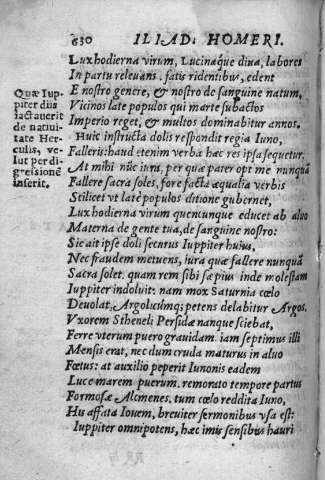 630 ILIAD. HOMERI.
Lux hodierna virum, Lucináque diua, labores
In partu releuans, fatis ridentibus, edent
E nostro genere, & nostro de sanguine natum,
Vicinos late populos qui marte subactos
Imperio reget, & multos dominabitur annos.
Huic instructa dolis respondit regia Iuno,
Falleris: haud etenim verba hæc res ipsa sequetur.
At mihi nūc iures, per quā pater opt me nunquā
Fallere sacra soles, fore facta æqualia verbis
Scilicet vt late populos ditione gubernet,
Lux hodierna virum quencunque educet ab aluo
Materna de gente tua, de sanguine nostro:
Sic ait ipse doli securus Iuppiter huius,
Nec fraudem metuens, iura quæ fallere nunquā
Sacra solet, quam rem sibi sæpius inde molestam
Iuppiter indoluit: nam mox Saturnia cœlo
Deuolat, Argolicúmq; petens delabitur Argos,
Vxorem Stheneli Persidæ nanque sciebat,
Ferre vterum puero grauidam. iam septimus illi
Mensis erat, nec dum cruda maturus in aluo
Fœtus: at auxilio peperit Iunonis eadem
Luce marem puerum, remorato tempore partus
Formosæ Alcmenes. tum cœlo reddita Iuno,
His affata Iouem, breuiter sermonibus vsa est:
Iuppiter omnipotens, hæc imis sensibus hauri
Quæ Iup-
piter diis
iactauerit
de natiui-
tate Her-
culis, ve-
lut per di-
gressionē
inserit.